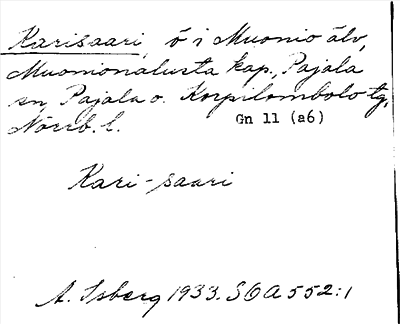 Karisaari, ö i Muonio älv,
Muonionalusta kap., Pajala
sn, Pajala o. Korpilombolo tg,
Norrb. l.
Gn 11 (a6)
Kari-saari
A. Isberg 1933. SOA 552:1